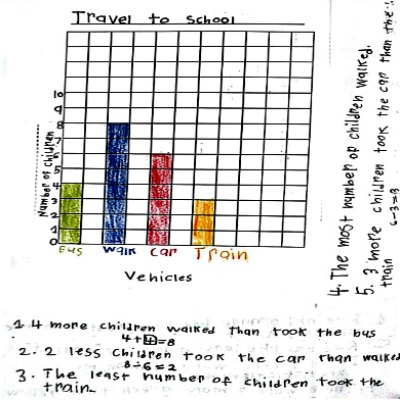 Travel to School
Number of Children
10
9
8
7
6
5
4
3
2
1
0
Bus Walk Car Train
Vehicles
1 4 more children walked than took the bus
4+4=8
2. 2 less children took the car than walked
8-6=2
3. The least number of children took the
train
4. The most number of children walked.
5. 3 more children took the car than the
train 6-3=3